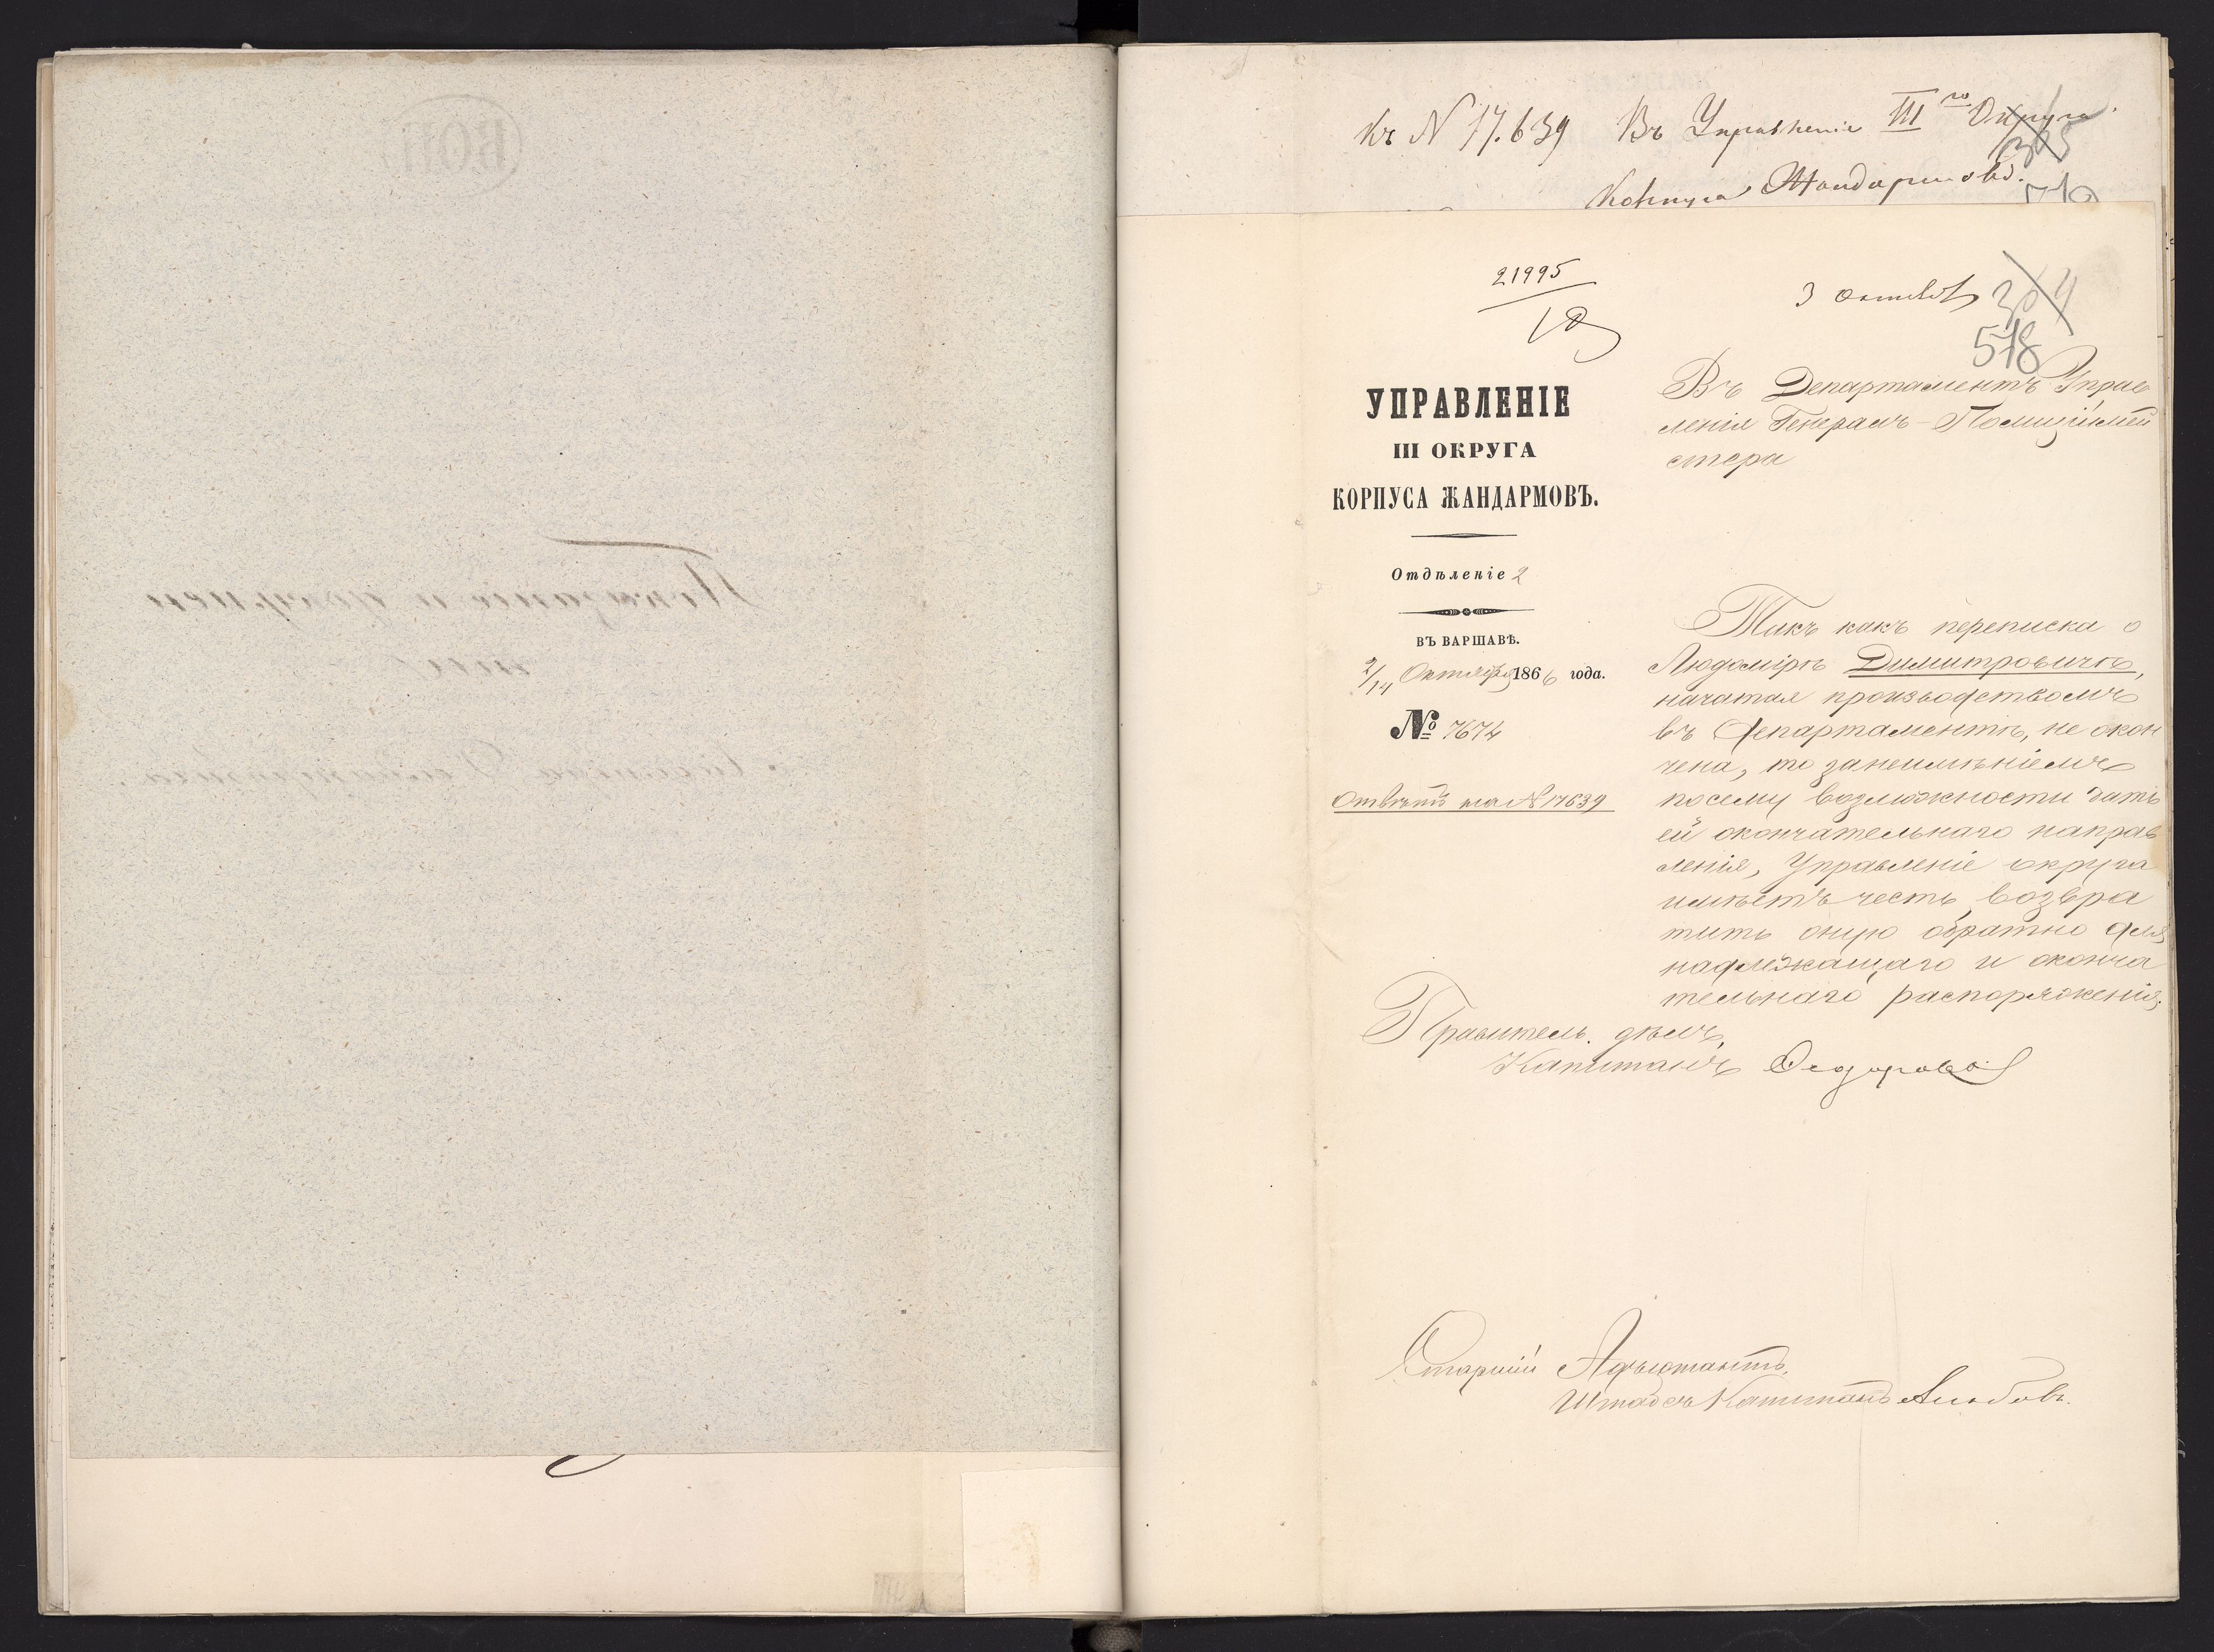 Къ N 17.639 Въ Управленіе III го Округа
Корпуса Жандармовъ.
365
519
21995
3 октября
364
518
УПРАВЛЕНІЕ
III ОКРУГА
КОРПУСА ЖАНДАРМОВЪ.
Отдѣленіе 2
ВЪ ВАРШАВѢ.
2/14 Октября 1866 года.
№ 7674
Отвѣтъ на N 17639
Въ Департаментъ Управ
ленія Генералъ-Полиціймей
стера
Такъ какъ переписка о
Людомірѣ Димитровичѣ,
начатая производствомъ
въ Департаментѣ, не окон
чена, то за неимѣніемъ
посему возможности дать
ей окончательнаго направ
ленія, Управленіе округа
имѣетъ честь возвра
тить оную обратно для
надлежащаго и оконча
тельнаго распоряженія.
Правитель дѣлъ,
Капитанъ Федоровъ
Старшій Адъютантъ,
Штабсъ Капитанъ